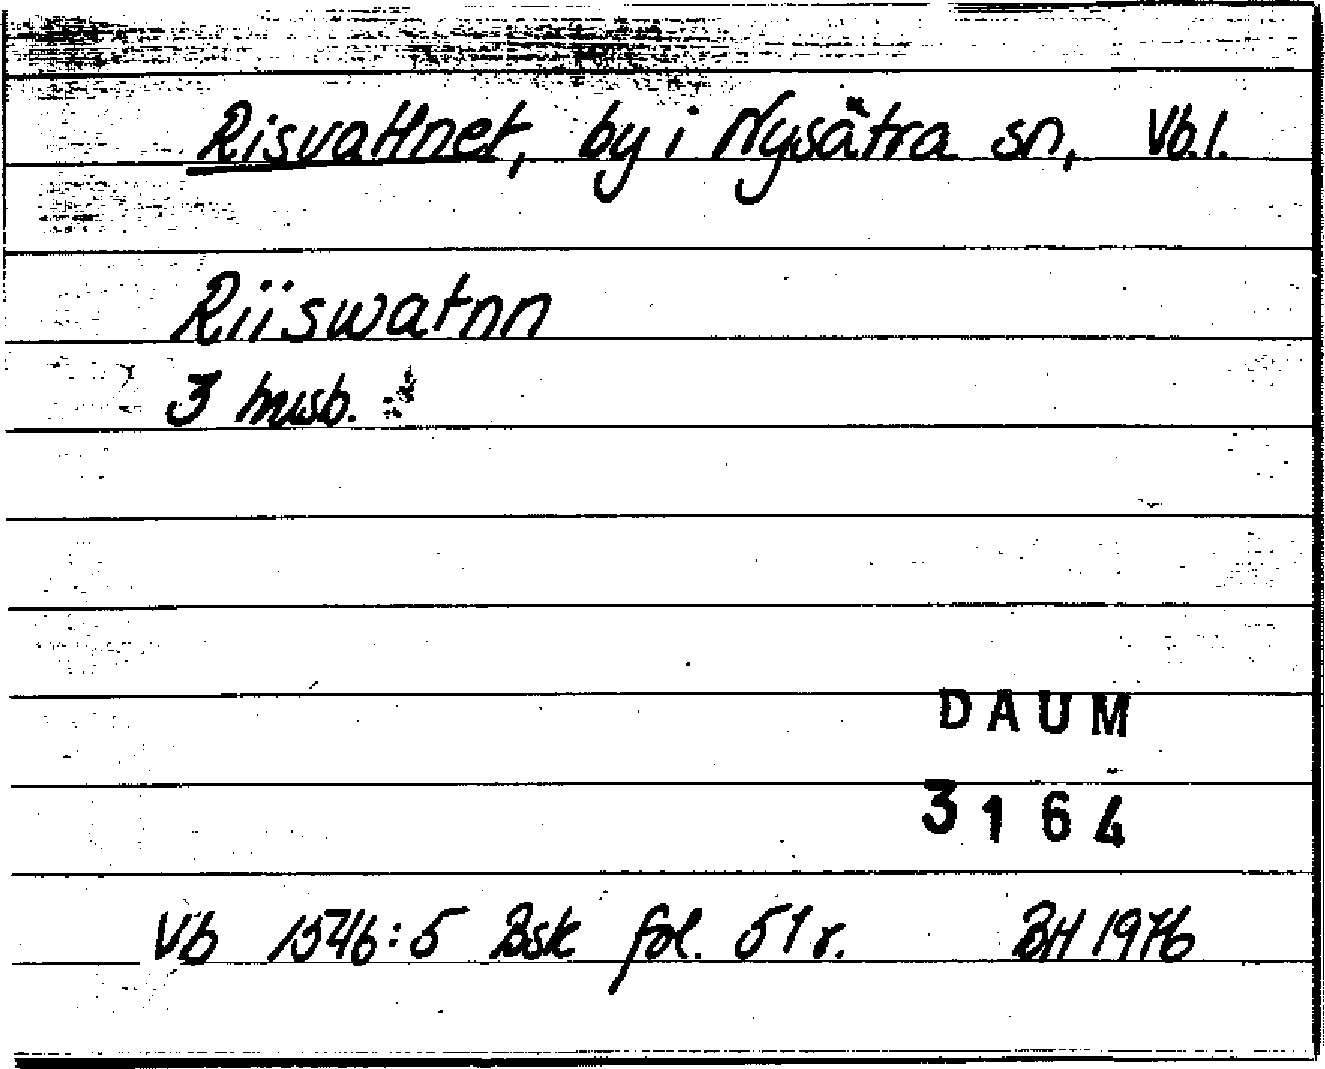 Risvattnet, by i Nysätra sn, Vb.l.
Riiswatnn
3 husb.
DAUM
3164
Vb 1546:5 Bsk fol. 51 r. BH 1976